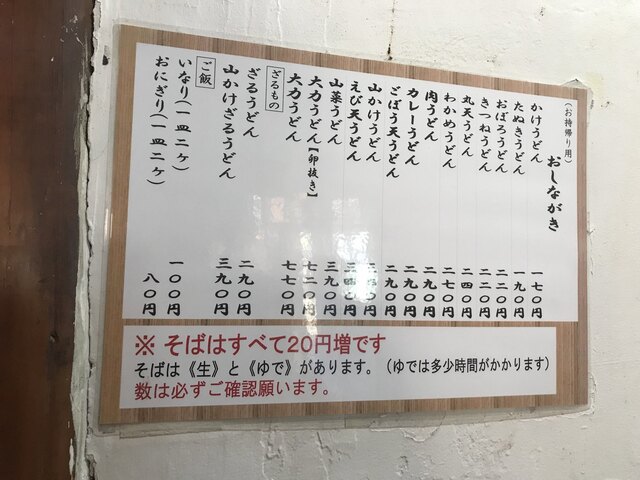 (お持帰り用)
おしながき
かけうどん 一七〇円
たぬきうどん 一九〇円
おぼろうどん 二二〇円
きつねうどん 二二〇円
丸天うどん 二四〇円
わかめうどん 二七〇円
肉うどん 二九〇円
カレーうどん 二九〇円
ごぼう天うどん 二九〇円
山かけうどん
えび天うどん
山菜うどん 三九〇円
大力うどん【卵抜き】 七二〇円
大力うどん 七七〇円
ざるもの
ざるうどん 二九〇円
山かけざるうどん 三九〇円
ご飯
いなり(一皿二ヶ) 一〇〇円
おにぎり(一皿二ヶ) 八〇円
※ そばはすべて20円増です
そばは《生》と《ゆで》があります。（ゆでは多少時間がかかります）
数は必ずご確認願います。